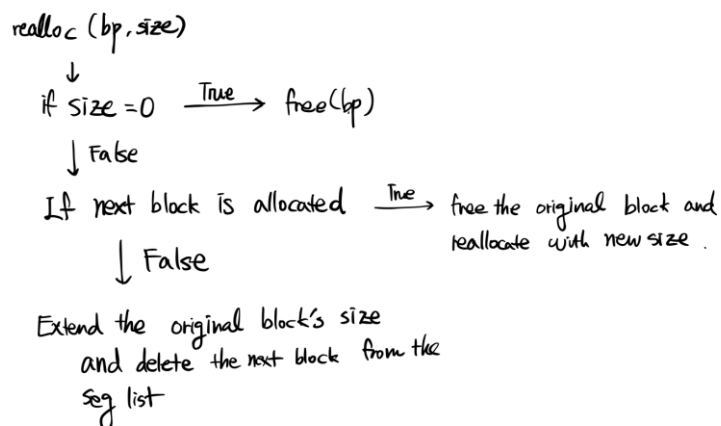 realloc (bp, size)
↓
if size = 0 True → free(bp)
↓ False
If next block is allocated True → free the original block and
reallocate with new size.
↓ False
Extend the original block's size
and delete the next block from the
seg list